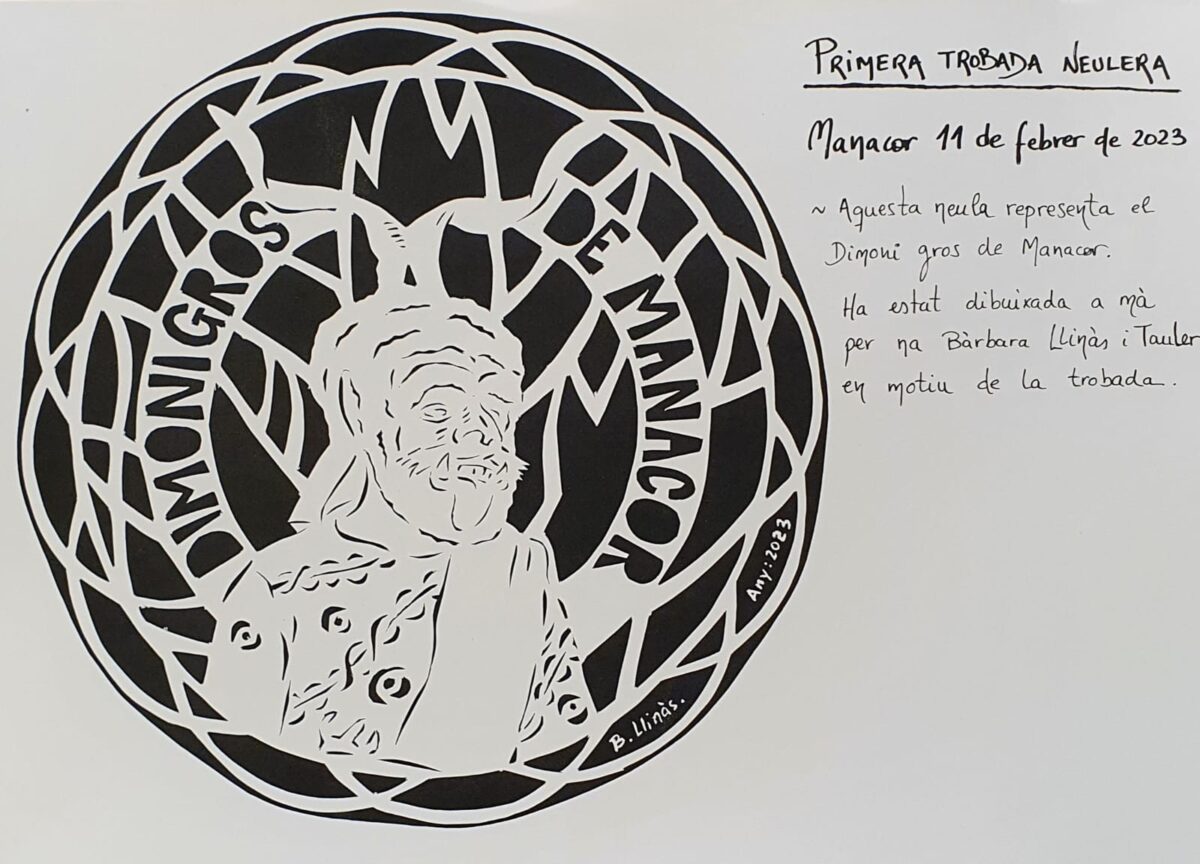 DIMONIGROS
DE MANACOR
Any: 2023
B. Llinàs.
PRIMERA TROBADA NEULERA
Manacor 11 de febrer de 2023
~ Aquesta neula representa el
Dimoni gros de Manacor.
Ha estat dibuixada a mà
per na Bàrbara Llinàs i Tauler
en motiu de la trobada.